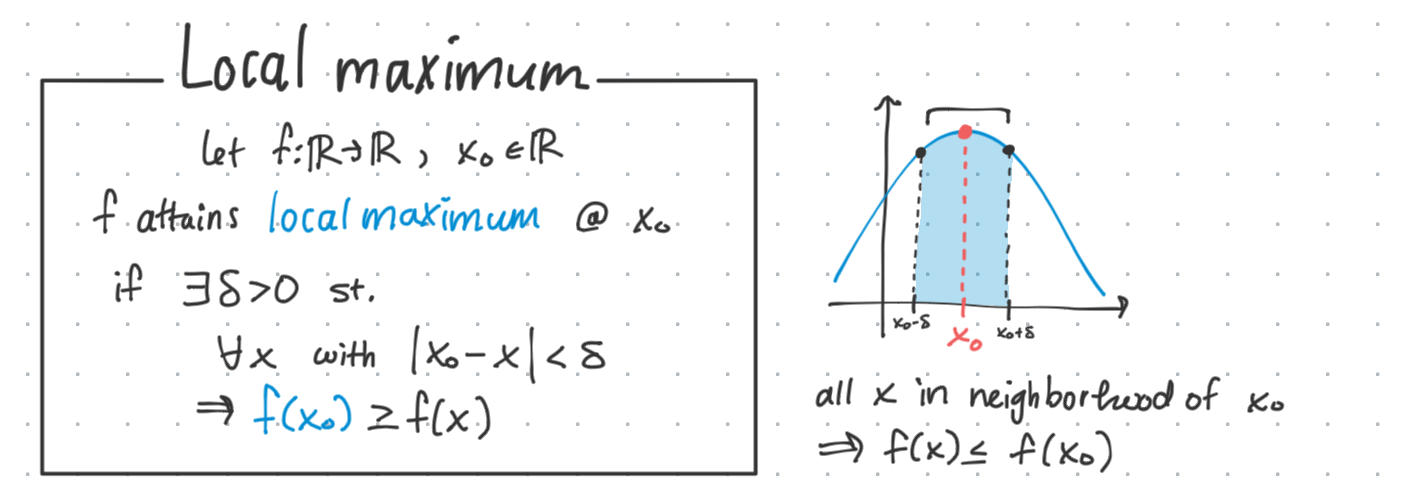 Local maximum
let f:ℝ→ℝ, x₀∈ℝ
f attains local maximum @ x₀
if ∃δ>0 st.
∀x with |x₀-x|<δ
⇒ f(x₀) ≥ f(x)
x₀-δ x₀ x₀+δ
all x in neighborhood of x₀
⇒ f(x) ≤ f(x₀)